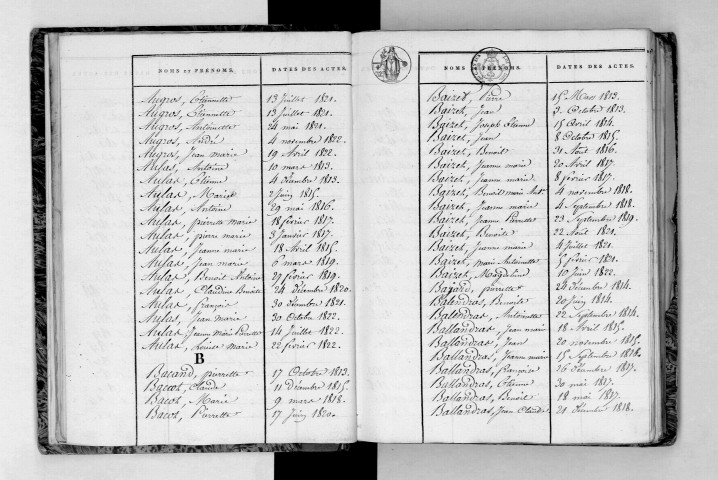 NOMS ET PRÉNOMS. DATES DES ACTES.
Augros, Etiennette 13 Juillet 1821.
Augros, Etiennette 13 Juillet 1821.
Augros, Antoinette 24 mai 1821.
Augros, André 4 novembre 1822.
Augros, Jean marie 19 Avril 1822.
Aulas, Antoine 10 mars 1813.
Aulas, Etienne 4 décembre 1813.
Aulas, Mariet 2 Juin 1815.
Aulas, Antoine 29 mai 1816.
Aulas, pierrette marie 18 février 1817.
Aulas, pierre marie 3 Janvier 1817.
Aulas, Jeanne marie 18 Avril 1815.
Aulas, Jean marie 6 mars 1819.
Aulas, Benoit Antoine 29 février 1819.
Aulas, Claudine Benoite 24 décembre 1820.
Aulas, françois 30 décembre 1821.
Aulas, Jean marie 30 Octobre 1822.
Aulas, Jeanne Marie Pierrette 14 Juillet 1822.
Aulas, Louise Marie 22 février 1822.
B
Bacand, pierrette 17 Octobre 1813.
Bacot, Claude 11 Décembre 1815.
Bacot, Marie 9 mars 1818.
Bacot, Pierrette 17 Juin 1820.
NOMS ET PRÉNOMS. DATES DES ACTES.
Baizet, Pierre 15 Mars 1813.
Baizet, Jean 7 Octobre 1813.
Baizet, Joseph Etienne 15 Avril 1814.
Baizet, Jean 8 Octobre 1815.
Baizet, Benoit 31 Aout 1816.
Baizet, Jeanne marie 20 Avril 1817.
Baizet, Jeanne marie 8 février 1817.
Baizet, Benoit marie 4 novembre 1818.
Baizet, Jeanne marie 4 Septembre 1818.
Baizet, Jeanne Pierrette 23 Septembre 1819.
Baizet, Benoite 22 Aout 1821.
Baizet, Jeanne marie 4 Juillet 1821.
Baizet, Marie Antoinette février 1821.
Baizet, Magdeleine 10 Juin 1822.
Bajard, pierrette 24 Décembre 1814.
Balandras, Benoite 20 Juin 1814.
Ballandras, Antoinette 22 Septembre 1814.
Ballandras, Jean marie 18 Avril 1815.
Ballandras, Jean 20 novembre 1815.
Ballandras, Jeanne marie 15 Septembre 1818.
Ballandras, françoise 26 Décembre 1817.
Ballandras, Etienne 30 mai 1817.
Ballandras, Benoit 18 mai 1817.
Ballandras, Jean Claude 21 Décembre 1818.